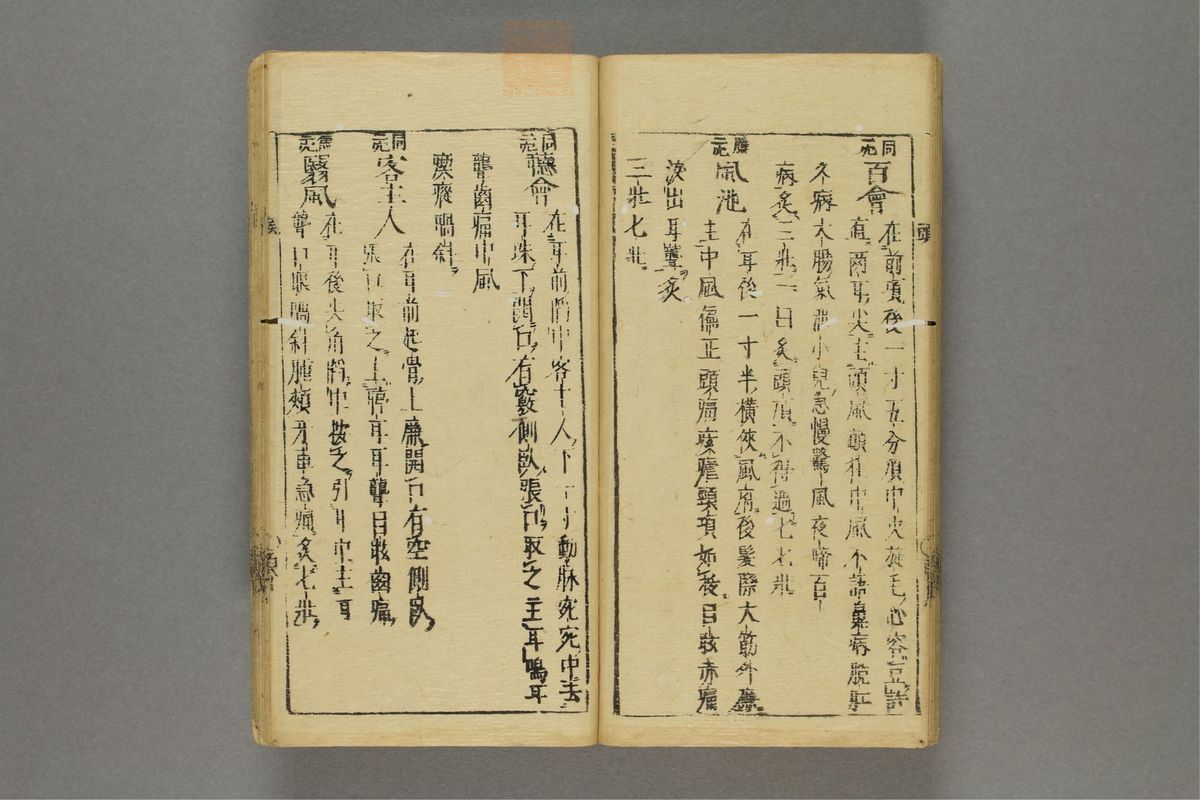 頭
同
百會
在前頂後一寸五分頂中央旋毛心容豆許
直兩耳尖主頭風癲狂中風不語鼻病脫肛
久病大腸氣泄小兒急慢驚風夜啼百
病灸三壯一日灸頭頂不得過七七壯
膽
風池
在耳後一寸半橫俠風府後髮際大筋外廉
主中風偏正頭痛瘧頸項如拔目眩赤痛
淚出耳聾灸
三壯七壯
同
聽會
在耳前陷中客主人下一寸動脉宛宛中去
耳珠下開口有竅側臥張口取之主耳鳴耳
聾齒痛中風
喎斜
同
客主人
在耳前起骨上廉開口有空側臥
張口取之主耳聾目眩齒痛
焦
翳風
在耳後尖角陷中按之引耳中主耳
聾口眼喎斜腫頰牙車急痛灸七壯